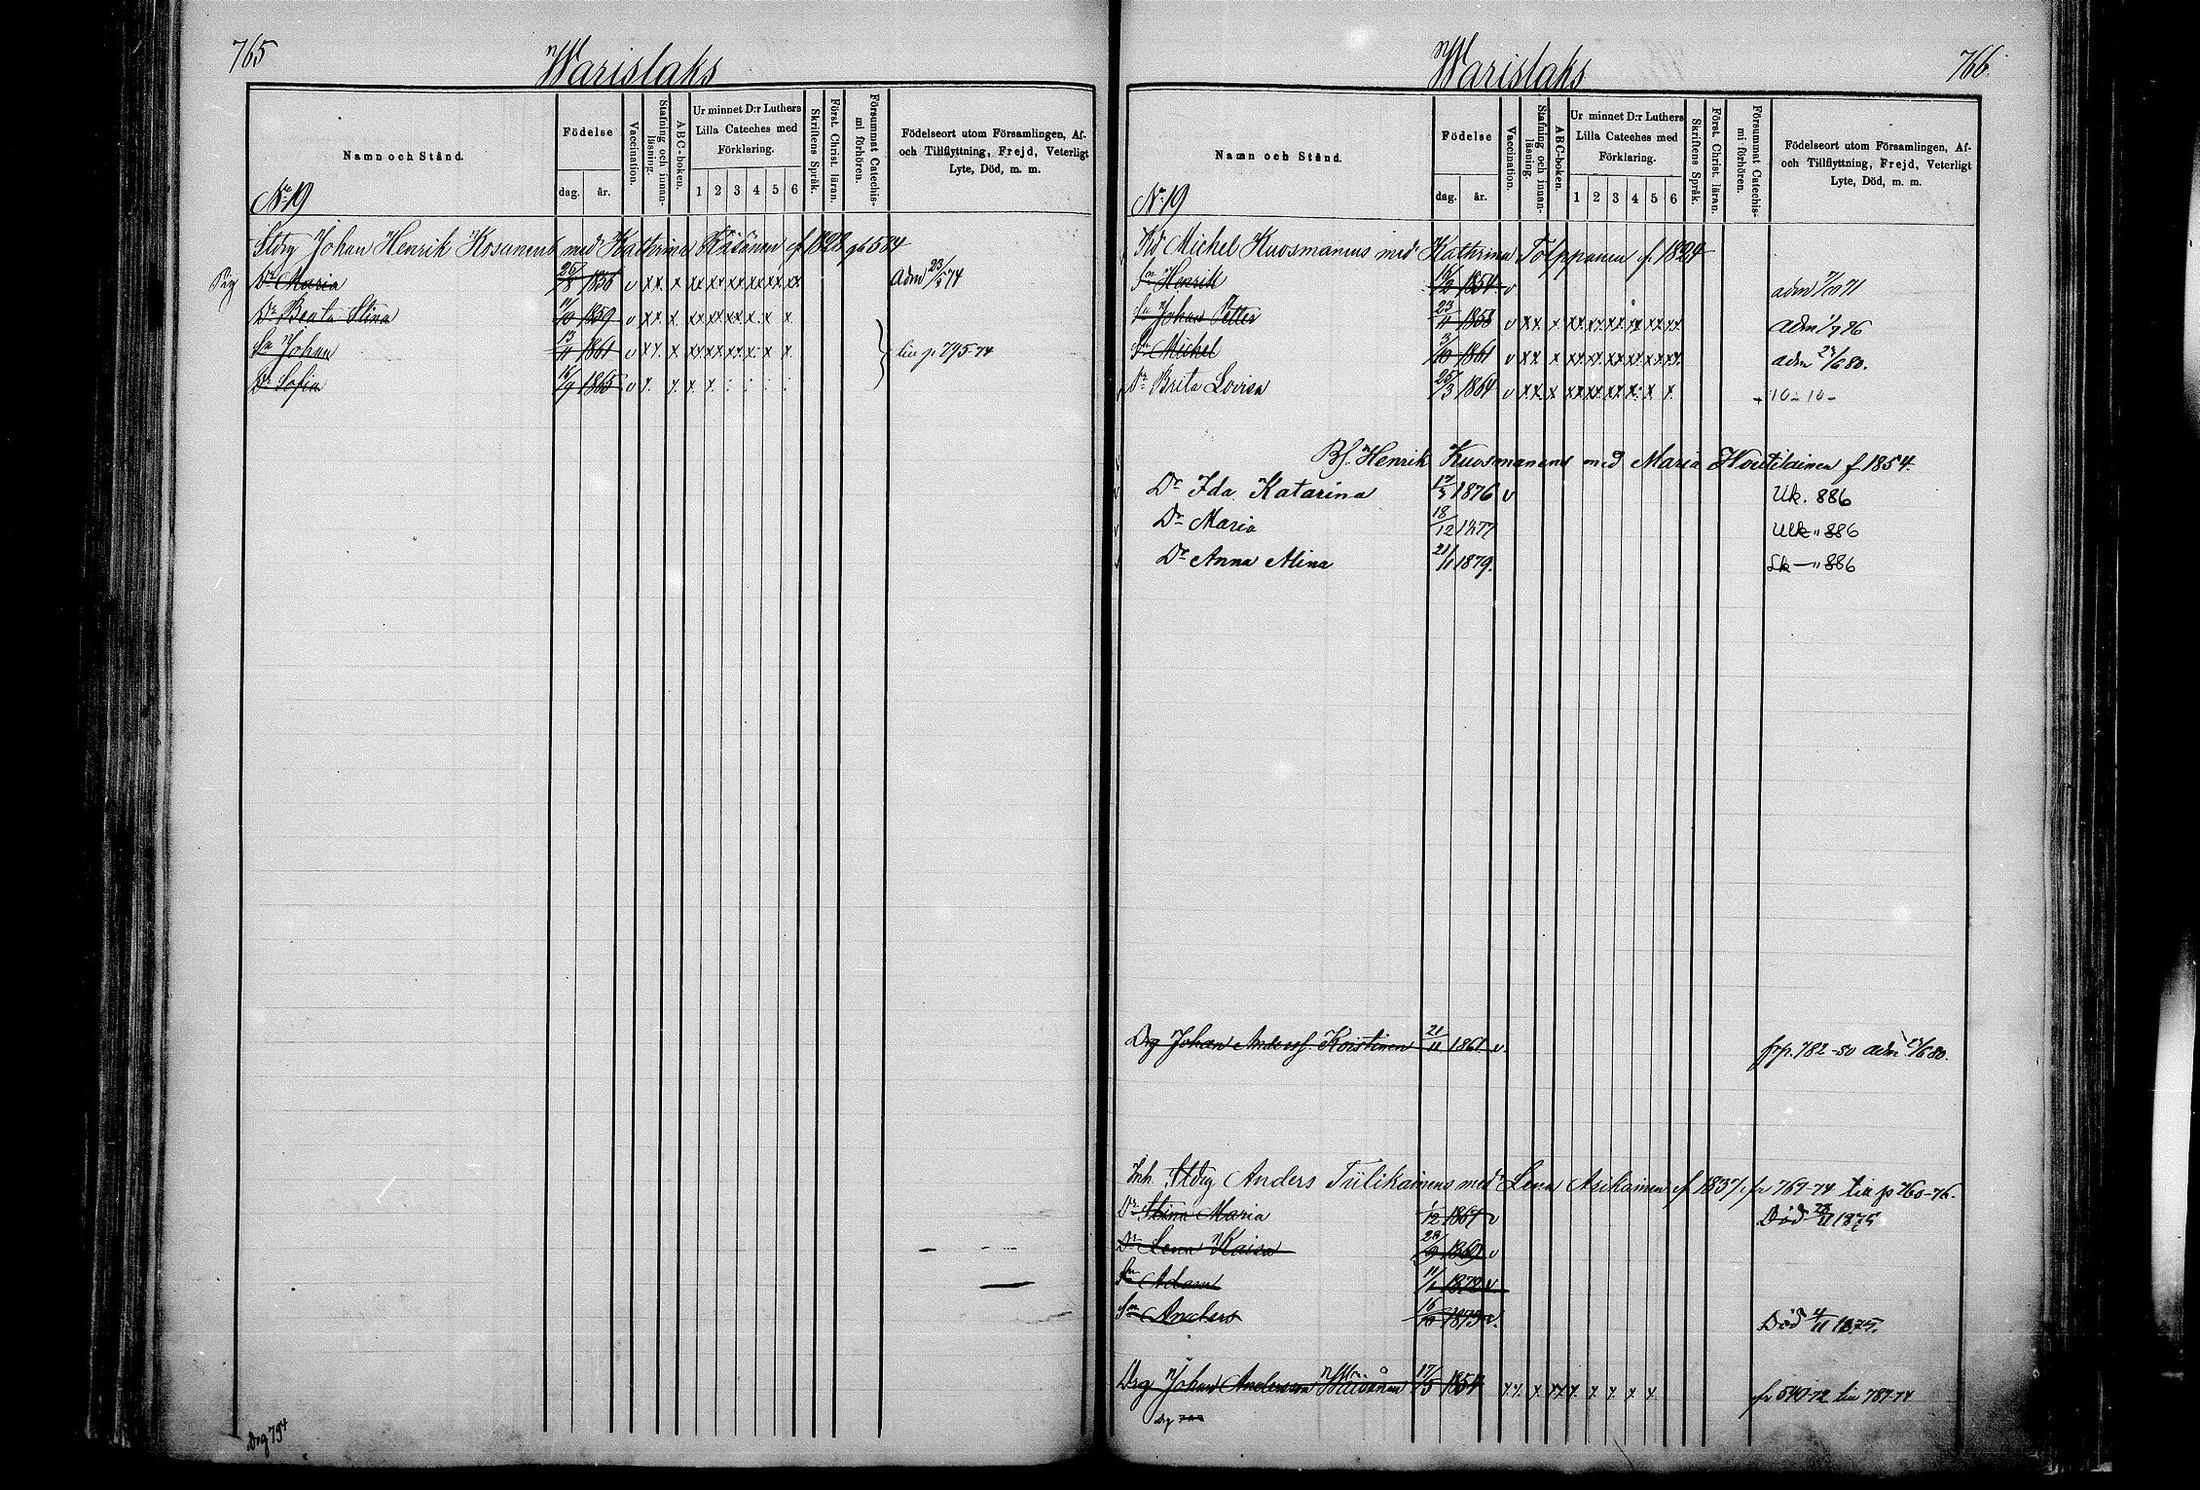 765
Warislaks
Namn och Stånd.
Födelse
dag.
år.
Vaccination.
Stafning och innan-
läsning.
ABC-boken.
Ur minnet D:r Luthers
Lilla Cateches med
Förklaring.
1 2 3 4 5 6
Skriftens Språk.
Först. Christ. läran.
Försummat Catechis-
mi förhören.
Födelseort utom Församlingen, Af-
och Tillflyttning, Frejd, Veterligt
Lyte, Död, m. m.
No 19
Stdrg Johan Henrik Kosunens med Kathrina Räsänen f. 1828
Dr Maria 25/8 1856 v xx x xx xx xx xx xx xx Adm 23/5 74
Dr Beata Stina 11/10 1859 v xx x xx xx xx x x x
Sn Johan 13/11 1861 v xx x xx xx xx x x x till p 795-74
Dr Sofia 16/9 1865 v x. x x x : : : :
Drg 754
Warislaks
766.
Namn och Stånd.
Födelse
dag.
år.
Vaccination.
Stafning och innan-
läsning.
ABC-boken.
Ur minnet D:r Luthers
Lilla Cateches med
Förklaring.
1 2 3 4 5 6
Skriftens Språk.
Först. Christ. läran.
Försummat Catechis-
mi förhören.
Födelseort utom Församlingen, Af-
och Tillflyttning, Frejd, Veterligt
Lyte, Död, m. m.
No 19
Michel Kuosmanens med Kathrina Tolppanen f. 1824
Sn Henrik 1854 v adm 71
Sn Johan Petter 23/11 1858 v xx x xx xx xx xx xx xx adm 1/7 76
Sn Michel 3/10 1861 v xx x xx xx xx xx xx xx adm 80.
Dr Brita Lovisa 25/3 1864 v xx x xx xx xx x x x
Henrik Kuosmanens med Maria Woutilainen f. 1854.
Dr Ida Katarina 17/3 1876 v Uk. 886
Dr Maria 18/12 1877 Uk " 886
Dr Anna Alina 21/1 1879. Sk — " 886
Drg Johan Anderss. Koistinen 21/11 1861 v. frp. 782-80 adm 80.
Inh. Stdrg Anders Tiilikainens med Lena Asikainen f. 1837 fr 769-74 till p 760-76.
Dr Stina Maria 1/12 1867 v Död 28/11 1875
Dr Lena Kaisa 1869 v
Sn Adam 11/1 1872 v
Sn Anders 16/10 1873 v. Död 4/11 1875.
Drg Johan Andersson 17/5 1854 fr 540-72 till 787-74